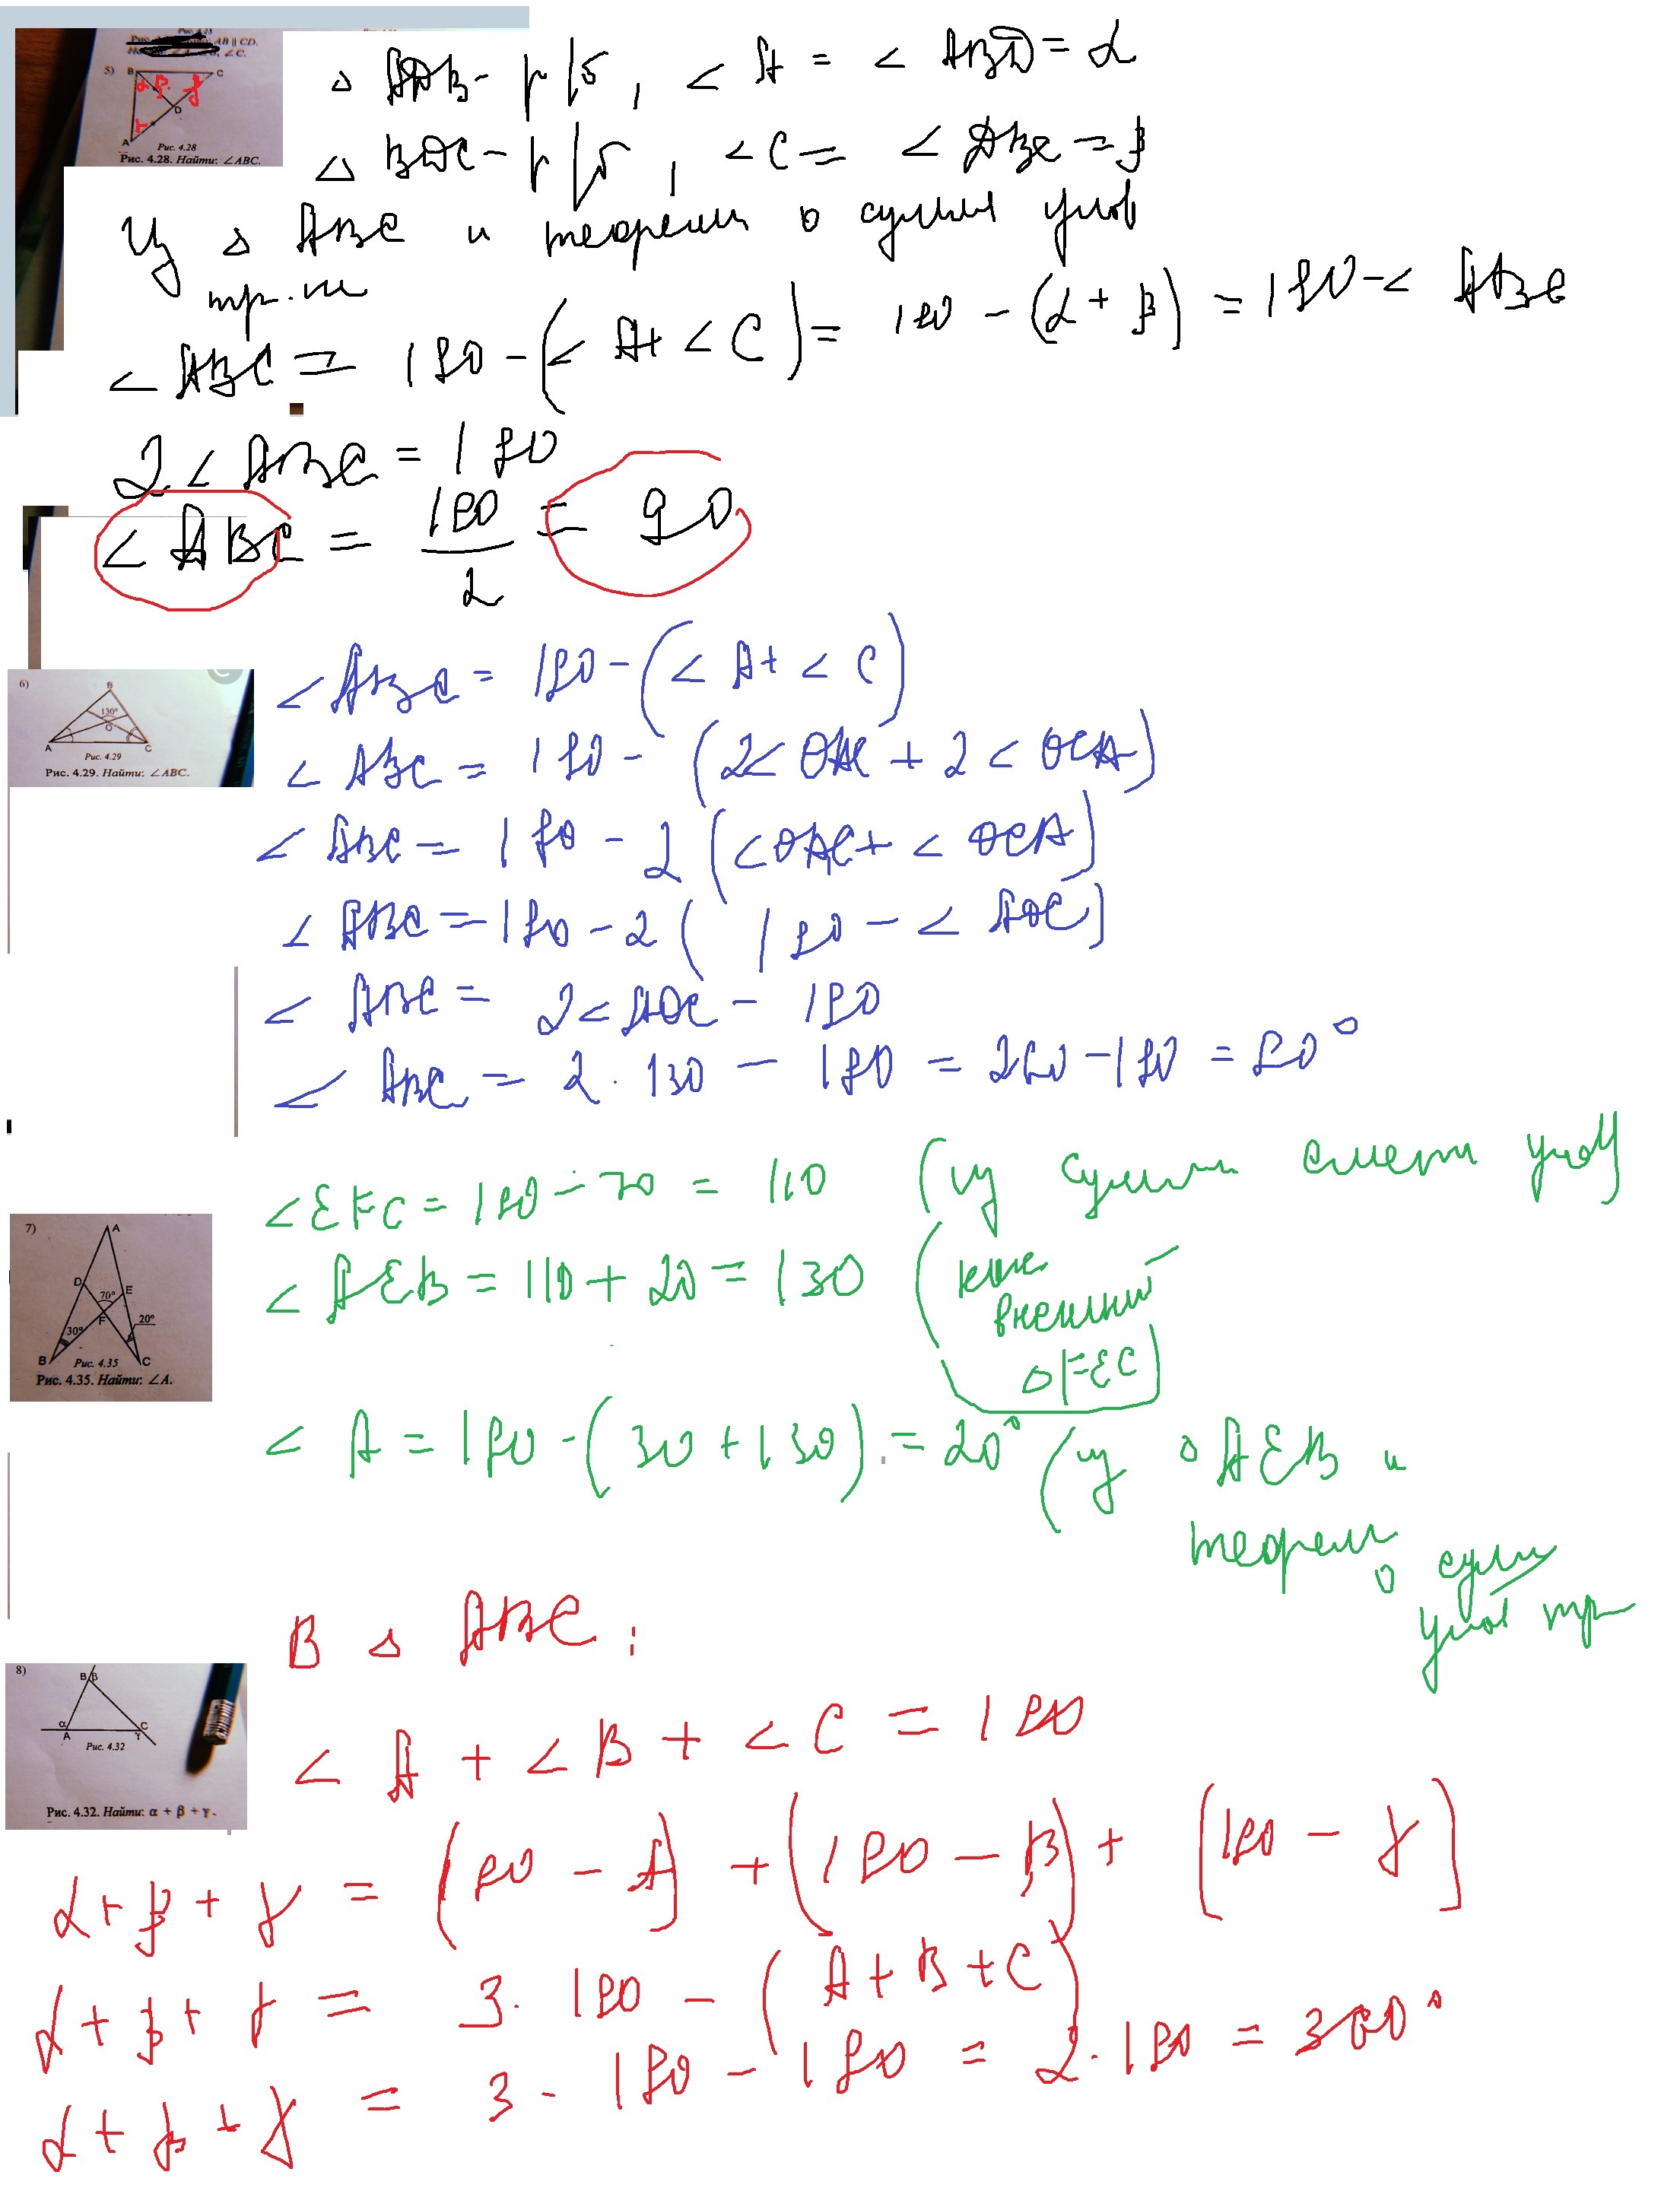 AB ∥ CD.
∠C.
5)
B
C
α
β
γ
D
A
Рис. 4.28
Рис. 4.28. Найти: ∠ABC.
△ ADB - р/б, ∠ A = ∠ ABD = α
△ BDC - р/б, ∠C = ∠ DBC = β
Из △ ABC и теоремы о сумме углов
тр.-ка
∠ABC = 180 - (∠ A + ∠ C) = 180 - (α + β) = 180 - ∠ ABC
2∠ABC = 180
∠ABC = 180/2 = 90
6)
B
130°
O
A
C
Рис. 4.29
Рис. 4.29. Найти: ∠ABC.
∠ABC = 180 - (∠ A + ∠ C)
∠ ABC = 180 - (2∠ OAC + 2 ∠ OCA)
∠ ABC = 180 - 2 (∠OAC + ∠ OCA)
∠ ABC = 180 - 2 (180 - ∠ AOC)
∠ ABC = 2∠AOC - 180
∠ ABC = 2 · 130 - 180 = 260 - 180 = 80°
7)
A
D
E
70°
F
20°
30°
B
C
Рис. 4.35
Рис. 4.35. Найти: ∠A.
∠EFC = 180 - 70 = 110 (из суммы смежн углов)
∠ AEB = 110 + 20 = 130 (как
внешний
△FEC)
∠ A = 180 - (30 + 130) = 20° (из △ AEB и
теорем о сумм
углов тр
8)
B β
α
A
C
γ
Рис. 4.32
Рис. 4.32. Найти: α + β + γ.
В △ ABC:
∠ A + ∠B + ∠C = 180
α + β + γ = (180 - A) + (180 - B) + (180 - γ)
α + β + γ = 3 · 180 - (A + B + C)
α + β + γ = 3 · 180 - 180 = 2 · 180 = 360°